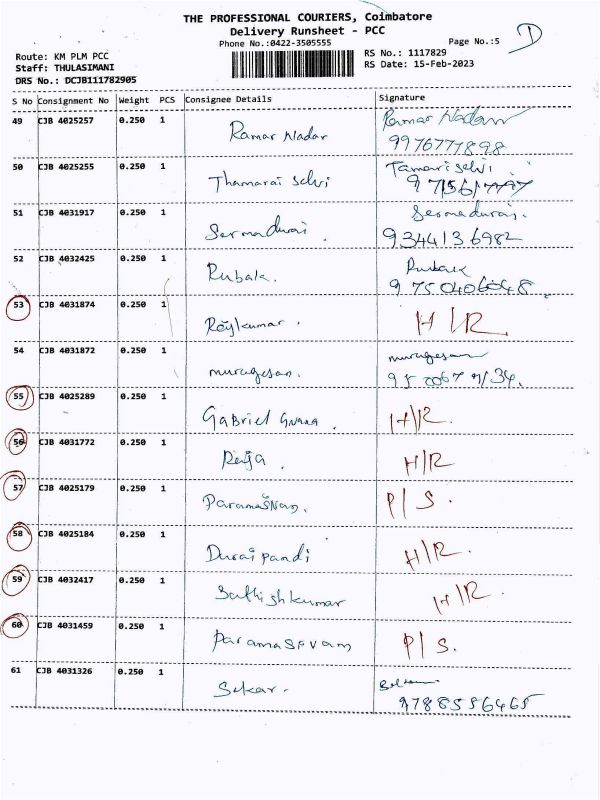 THE PROFESSIONAL COURIERS, Coimbatore
Delivery Runsheet - PCC
Phone No.:0422-3505555
Page No.:5 D
Route: KM PLM PCC
RS No.: 1117829
Staff: THULASIMANI
RS Date: 15-Feb-2023
DRS No.: DCJB111782905
S No Consignment No Weight PCS Consignee Details Signature
49 CJB 4025257 0.250 1 Ramar Nadar Ramar Nadar
9976777898
50 CJB 4025255 0.250 1 Thamarai Selvi Tamari Selvi
51 CJB 4031917 0.250 1 Sermadurai. Sermadurai.
9344136982
52 CJB 4032425 0.250 1 Rubak.
9750406048.
53 CJB 4031874 0.250 1 Rajkumar. H/R
54 CJB 4031872 0.250 1 murugesan. murugesan
55 CJB 4025289 0.250 1 Gabriel Gnana. H/R.
56 CJB 4031772 0.250 1 Raja. H/R
57 CJB 4025179 0.250 1 Paramasivam. P/S.
58 CJB 4025184 0.250 1 Durai pandi H/R.
59 CJB 4032417 0.250 1 Sathishkumar H/R.
60 CJB 4031459 0.250 1 Paramasivam P/S.
61 CJB 4031326 0.250 1 Sekar.
9788556465